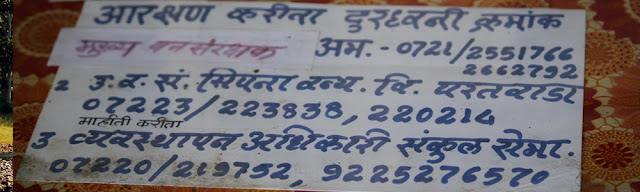 आरक्षण करीता दुरध्वनी क्रमांक
मुख्य वनसंरक्षक अम. - 0721/2551766
2662792
2 उ. व. सं. सिपना वन्य. वि. परतवाडा
07223/223838, 220214
माहीती करीता
3 व्यवस्थापन अधिकारी संकुल सेमा.
07220/219752, 9225276570